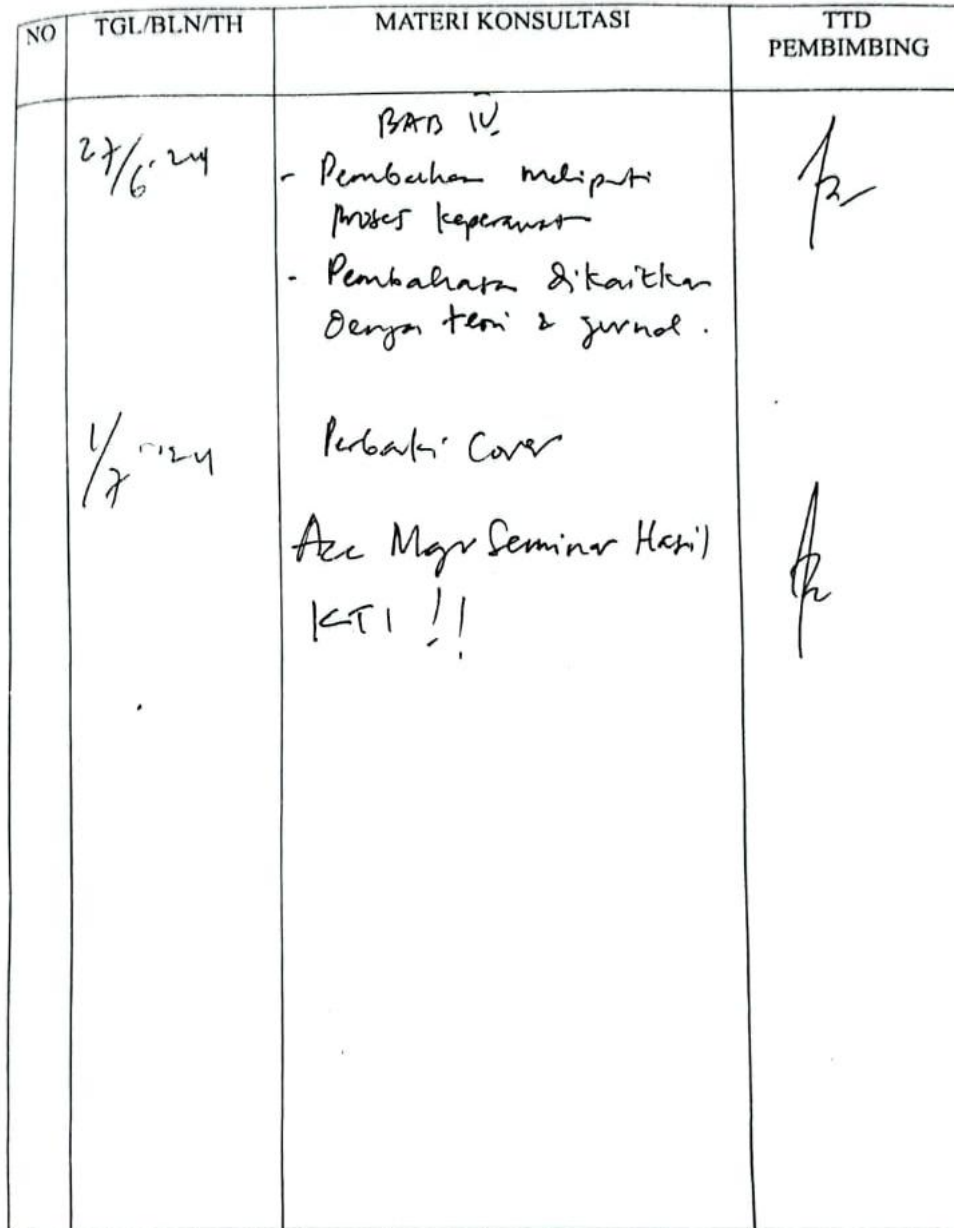 NO TGL/BLN/TH MATERI KONSULTASI TTD
PEMBIMBING
BAB IV
27/6-24
- Pembahasan meliputi
proses keperawat
- Pembahasan dikaitkan
dengan teori & jurnal.
1/7 -24 Perbaiki Cover
Acc Maju Seminar Hasil
KTI !!